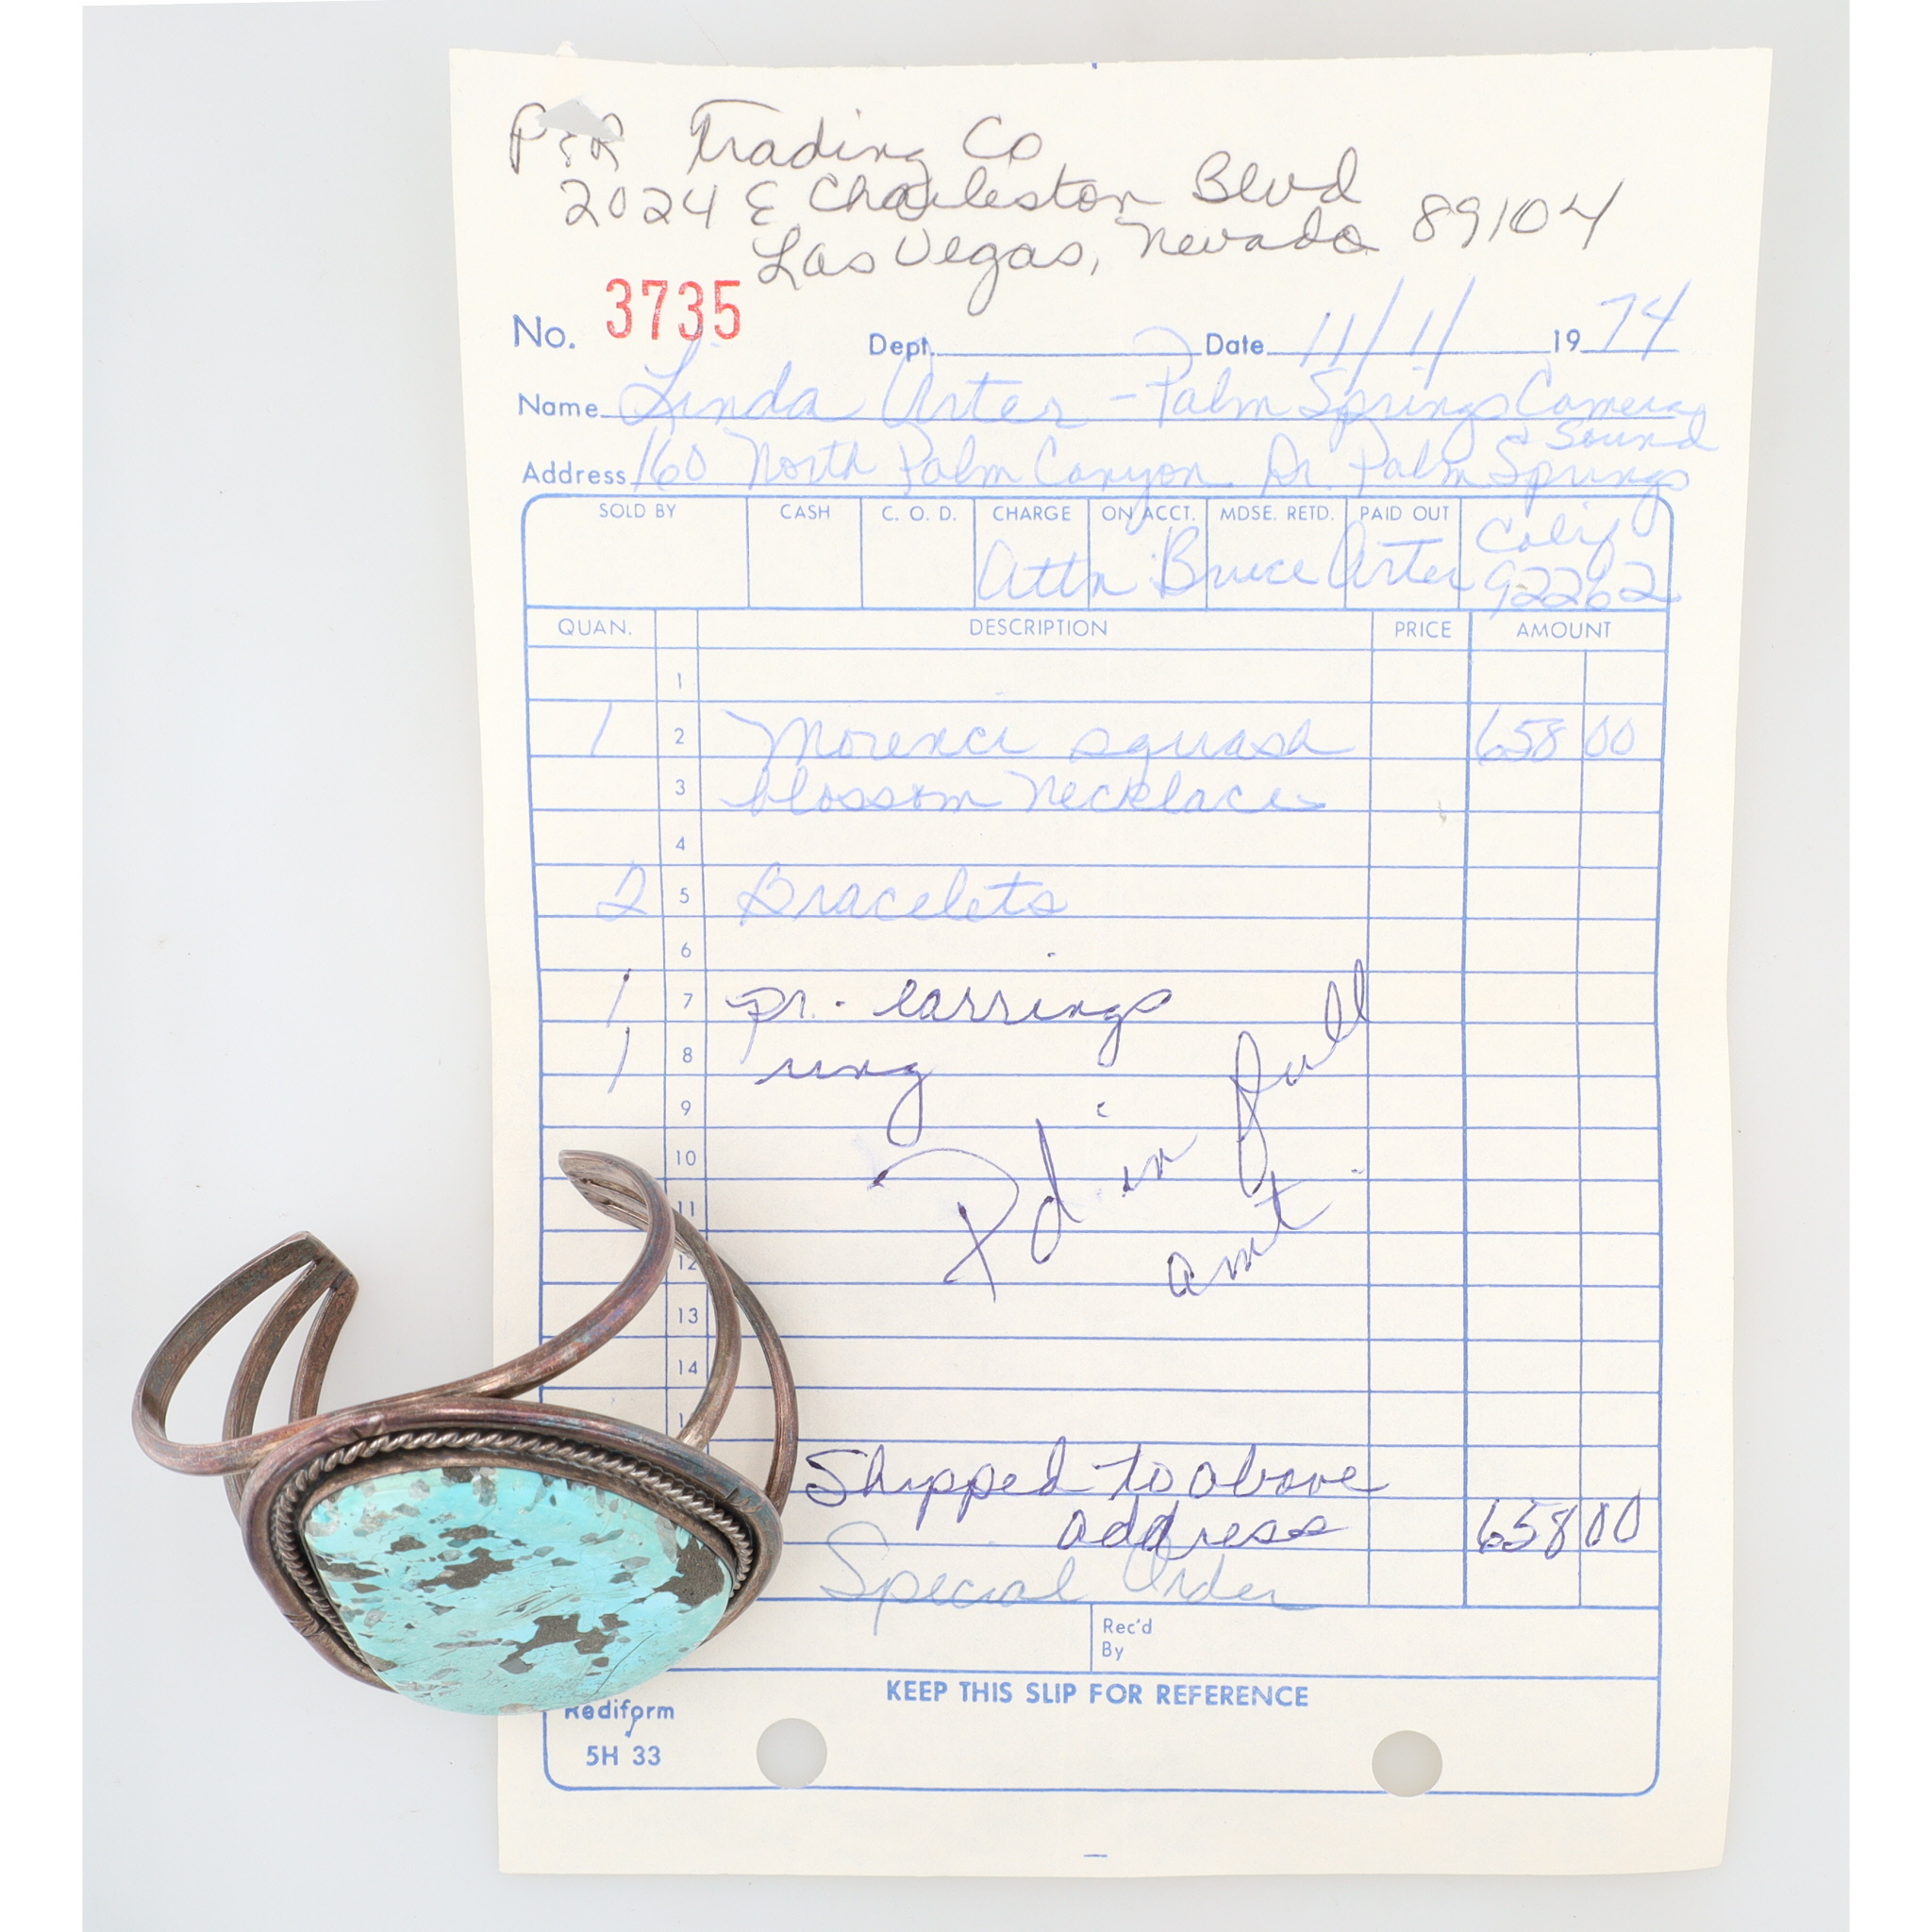 P&R Trading Co
2024 E Charleston Blvd
Las Vegas, Nevada 89104
No. 3735 Dept. Date 11/11 1974
Name Linda Arter - Palm Springs Camera
& Sound
Address 160 North Palm Canyon Dr. Palm Springs
SOLD BY CASH C. O. D. CHARGE ON ACCT. MDSE. RETD. PAID OUT Calif
Attn Bruce Arter 92262
QUAN. DESCRIPTION PRICE AMOUNT
1
1 2 Morenci squash 658 00
3 blossom necklace
4
2 5 Bracelets
6
1 7 pr. earrings
1 8 ring
9
Pd in full
10
amt
11
12
13
14
1
Shipped to above
address 658 00
Special Order
Rec'd
By
KEEP THIS SLIP FOR REFERENCE
Rediform
5H 33